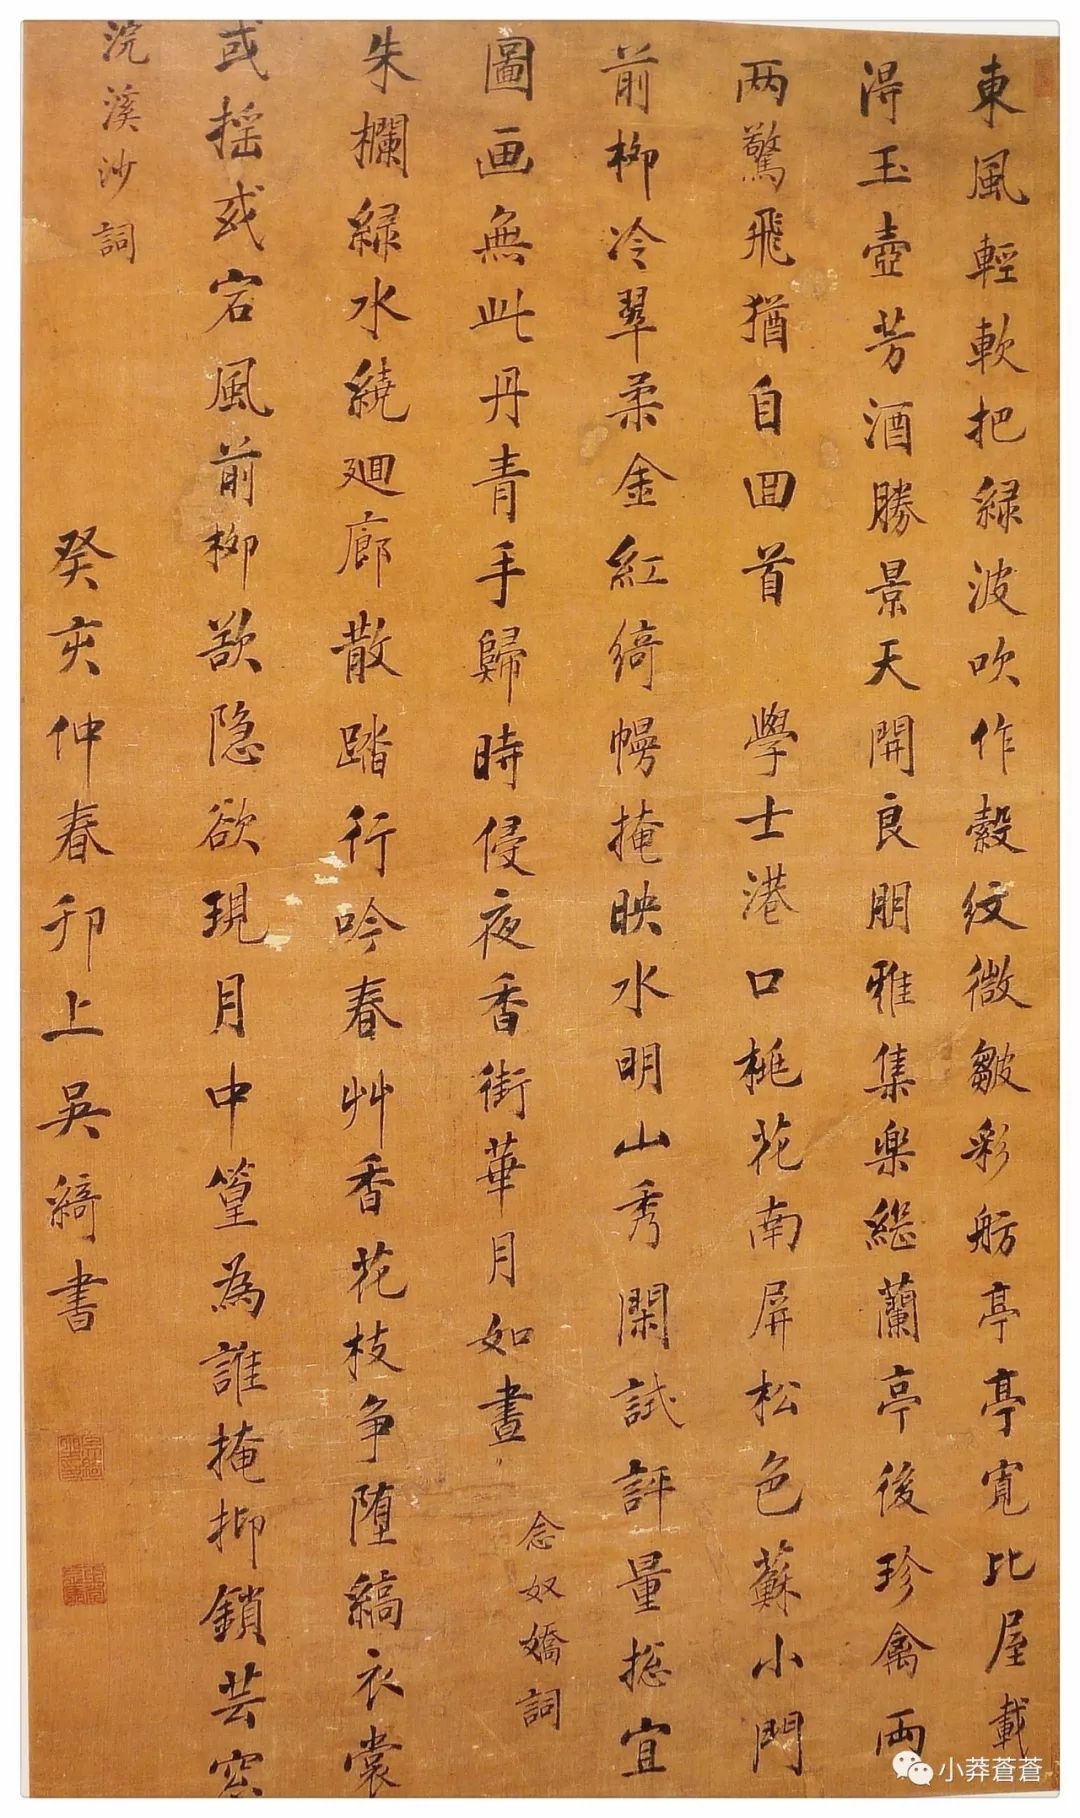 東風輕軟把緑波吹作縠紋微皺彩舫亭亭寬比屋載
得玉壺芳酒勝景天開良朋雅集樂繼蘭亭後珍禽兩
兩驚飛猶自回首　學士港口桃花南屏松色蘇小門
前柳冷翠柔金紅綺幔掩映水明山秀閑試評量揔宜
圖画無此丹青手歸時侵夜香街華月如晝
念奴嬌詞
朱欄緑水繞廻廊散踏行吟春艸香花枝争堕縞衣裳
或搖或宕風前柳欲隐欲現月中篁為誰掩抑鎖芸窓
浣溪沙詞
癸亥仲春邗上吳綺書
小莽蒼蒼